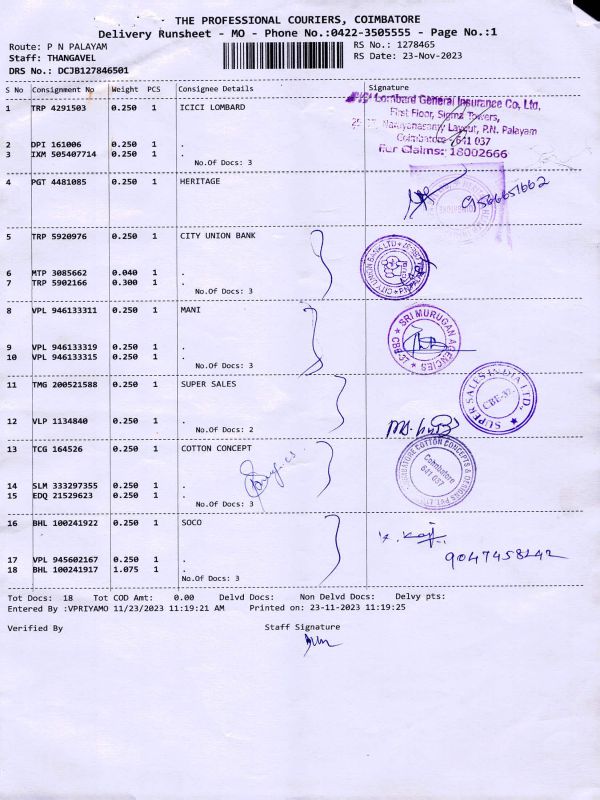 THE PROFESSIONAL COURIERS, COIMBATORE
Delivery Runsheet - MO - Phone No.:0422-3505555 - Page No.:1
Route: P N PALAYAM
RS No.: 1278465
Staff: THANGAVEL
RS Date: 23-Nov-2023
DRS No.: DCJB127846501
S No Consignment No Weight PCS Consignee Details Signature
1 TRP 4291503 0.250 1 ICICI LOMBARD
Lombard General Insurance Co, Ltd,
First Floor, Sigma Towers,
Layout, P.N. Palayam
Coimbatore 641 037
For Claims: 18002666
2 DPI 161006 0.250 1 .
3 IXM 505407714 0.250 1 .
No.Of Docs: 3
4 PGT 4481085 0.250 1 HERITAGE
9566651662
5 TRP 5920976 0.250 1 CITY UNION BANK
CITY UNION BANK LTD
6 MTP 3085662 0.040 1 .
7 TRP 5902166 0.300 1 .
No.Of Docs: 3
8 VPL 946133311 0.250 1 MANI
SRI MURUGAN AGENCIES
9 VPL 946133319 0.250 1 .
10 VPL 946133315 0.250 1 .
No.Of Docs: 3
11 TMG 200521588 0.250 1 SUPER SALES
SUPER SALES INDIA LTD.
CBE-37.
12 VLP 1134840 0.250 1 .
No.Of Docs: 2
13 TCG 164526 0.250 1 COTTON CONCEPT
COIMBATORE COTTON CONCEPTS & DESIGNS PVT. LTD.
Coimbatore
641 037
14 SLM 333297355 0.250 1 .
15 EDQ 21529623 0.250 1 .
No.Of Docs: 3
16 BHL 100241922 0.250 1 SOCO
9047458242
17 VPL 945602167 0.250 1 .
18 BHL 100241917 1.075 1 .
No.Of Docs: 3
Tot Docs: 18 Tot COD Amt: 0.00 Delvd Docs: Non Delvd Docs: Delvy pts:
Entered By :VPRIYAMO 11/23/2023 11:19:21 AM Printed on: 23-11-2023 11:19:25
Verified By Staff Signature